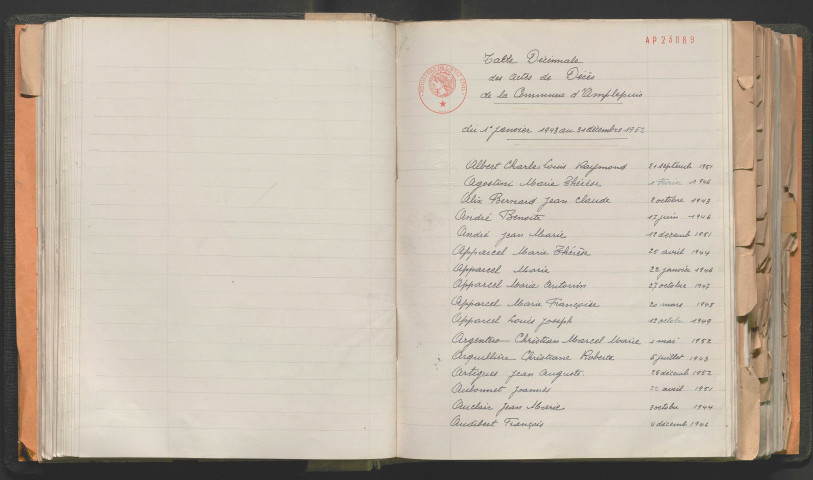 AP 23089
Table Décennale
des actes de Décès
de la Commune d'Amplepuis
du 1er janvier 1943 au 31 décembre 1952
Albert Charles Louis Raymond 21 septemb 1951
Agostini Marie Thérèse 1946
Alix Bernard Jean Claude octobre 1943
André Benoite 17 juin 1946
André Jean Marie décemb 1951
Apparcel Marie Thérèse 25 avril 1944
Apparcel Marie 22 janvier 1946
Apparcel Marie Antonin 27 octobre
Apparcel Marie Françoise 20 mars 1948
Apparcel Louis Joseph octobre 1949
Christian Marcel Marie 1 mai 1952
Christiane Roberte 5 juillet 1943
Artigues Jean Auguste décemb 1952
Aubonnet Joannès avril 1951
Auclair Jean Marie 3 octobre 1944
Audibert François 4 décemb 1946